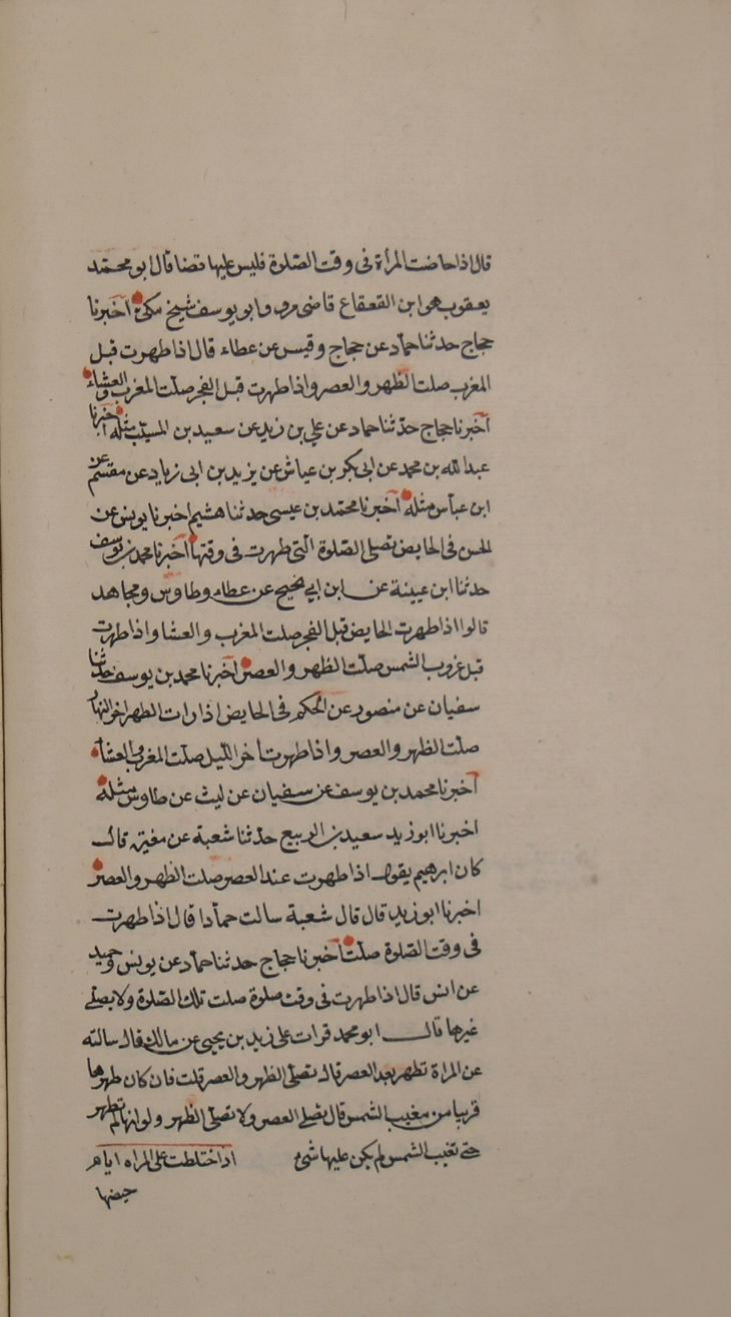 قال اذا حاضت المرأة فى وقت الصّلوة فليس عليها قضا قال ابو محمّد
يعقوب هو ابن القعقاع قاضى مرو وابو يوسف شيخ مكى اخبرنا
حجاج حدثنا حمّاد عن حجاج وقيس عن عطاء قال اذا طهرت قبل
المغرب صلت الظهر والعصر واذا طهرت قبل الفجر صلت المغرب والعشاء
اخبرنا حجاج حدّثنا حماد عن علي بن زيد عن سعيد بن المسيّب مثله اخبرنا
عبدالله بن محمد عن ابى بكر بن عياش عن يزيد بن ابى زياد عن مقسم عن
ابن عبّاس مثله اخبرنا محمّد بن عيسى حدثنا هشيم اخبرنا يونس عن
الحسن فى الحايض تصلى الصّلوة التى طهرت فى وقتها اخبرنا محمد بن يوسف
حدثنا ابن عيينة عن ابن ابي نجيح عن عطاء وطاوس ومجاهد
قالوا اذا طهرت الحايض قبل الفجر صلت المغرب والعشا واذا طهرت
قبل غروب الشمس صلّت الظهر والعصر اخبرنا محمد بن يوسف حدثنا
سفيان عن منصور عن الحكم فى الحايض اذا رات الطهر اخر النهار
صلّت الظهر والعصر واذا طهرت اخر الليل صلّت المغرب والعشاء
اخبرنا محمد بن يوسف عن سفيان عن ليث عن طاوس مثله
اخبرنا ابو زيد سعيد بن الربيع حدّثنا شعبة عن مغيرة قال
كان ابرهيم يقول اذا طهرت عند العصر صلت الظهر والعصر
اخبرنا ابو زيد قال قال شعبة سالت حمّادا قال اذا طهرت
فى وقت الصّلوة صلّت اخبرنا حجاج حدثنا حمّاد عن يونس وحميد
عن انس قال اذا طهرت فى وقت صلوة صلت تلك الصّلوة ولا تصلى
غيرها قال ابو محمد قرات على زيد بن يحيى عن مالك قال سالته
عن المراة تطهر بعد العصر قال تصلّى الظهر والعصر قلت فان كان طهرها
قريبا من مغيب الشمس قال تصلى العصر ولا تصلّى الظهر ولو انها لم تطهر
حتى تغيب الشمس لم يكن عليها شئ اذا اختلطت على المراه ايام
حيضها